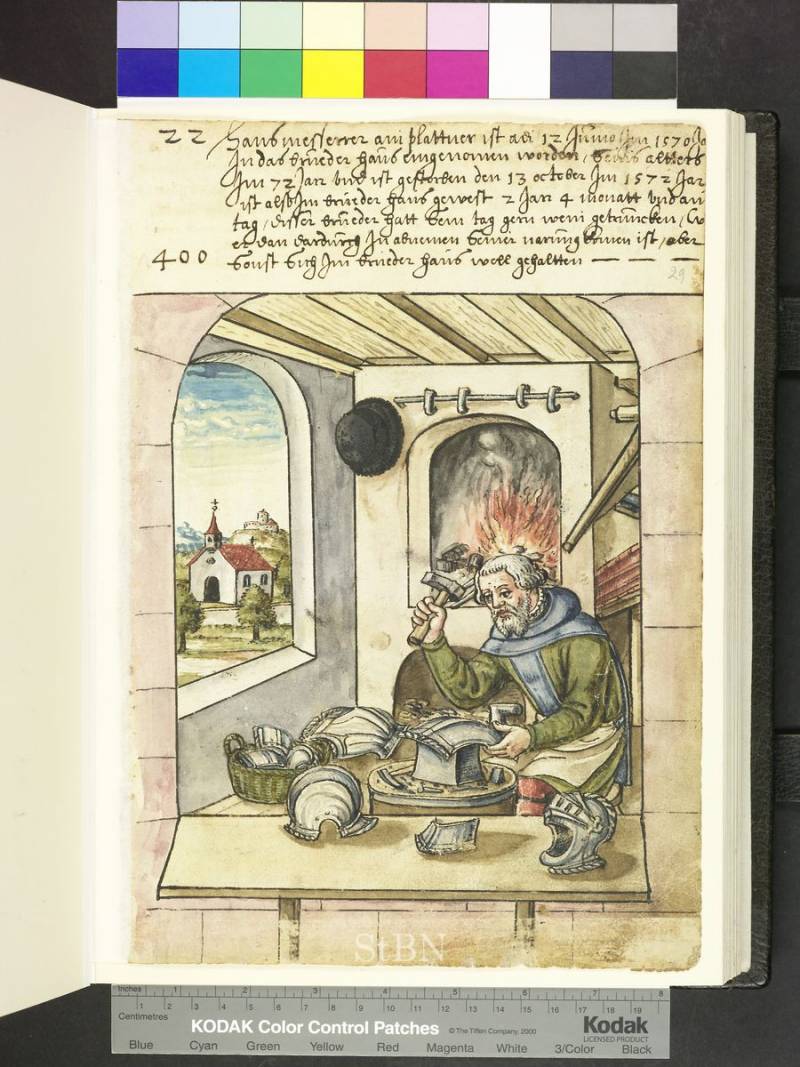 22 Hanns messerrer ain plattner ist adi 12 Junio Im 1570 Ja
In das brueder haus eingenomen worden, seins altters
Im 72 Jarr vnd ist gestorben den 13 october Im 1572 Jar
ist also Im brueder haus gewest 2 Jar 4 monatt vnd ain
tag, disser brueder hatt sein tag gern wein getrunncken,
er dan dardurch In abnemen seiner narung komen ist, aber
400 sonst sich Im brueder haus woll gehaltten
29
StBN
Inches 1 2 3 4 5 6 7 8
Centimetres 1 2 3 4 5 6 7 8 9 10 11 12 13 14 15 16 17 18 19
KODAK Color Control Patches © The Tiffen Company, 2000 Kodak
LICENSED PRODUCT
Blue Cyan Green Yellow Red Magenta White 3/Color Black